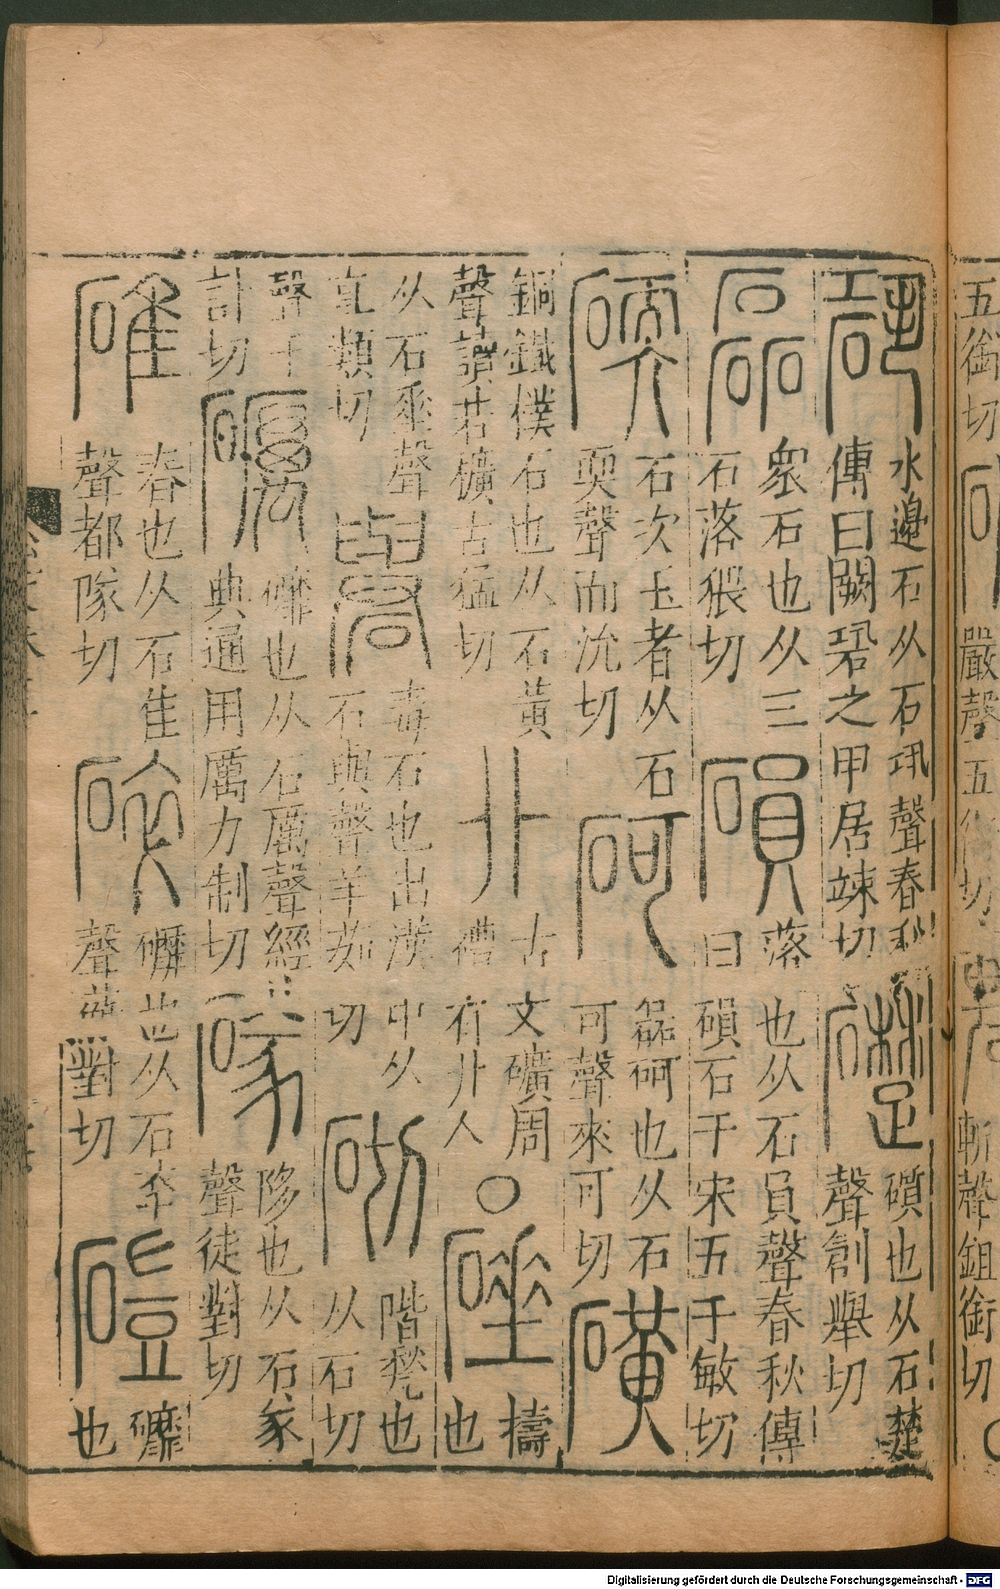 五銜切
嚴聲五銜切
斬聲鉏銜切
䂬
水邊石从石巩聲春秋
傳曰闕䂬之甲居竦切
礎
礩也从石楚
聲創舉切
磊
衆石也从三
石落猥切
磒
落也从石員聲春秋傳
曰磒石于宋五于敏切
碝
石次玉者从石
耎聲而沇切
砢
磊砢也从石
可聲來可切
磺
銅鐵僕石也从石黃
聲讀若礦古猛切
卝
古文礦周
禮有卝人
○
硾
擣
也
从石垂聲
直類切
礜
毒石也出漢中从
石與聲羊茹切
砌
階甃也
从石切
聲千
計切
礪
䃺也从石厲聲經
典通用厲力制切
䃍
陊也从石㒸
聲徒對切
碓
舂也从石隹
聲都隊切
碎
䃺也从石卒
聲蘇對切
磑
䃺
也
Digitalisierung gefördert durch die Deutsche Forschungsgemeinschaft - DFG